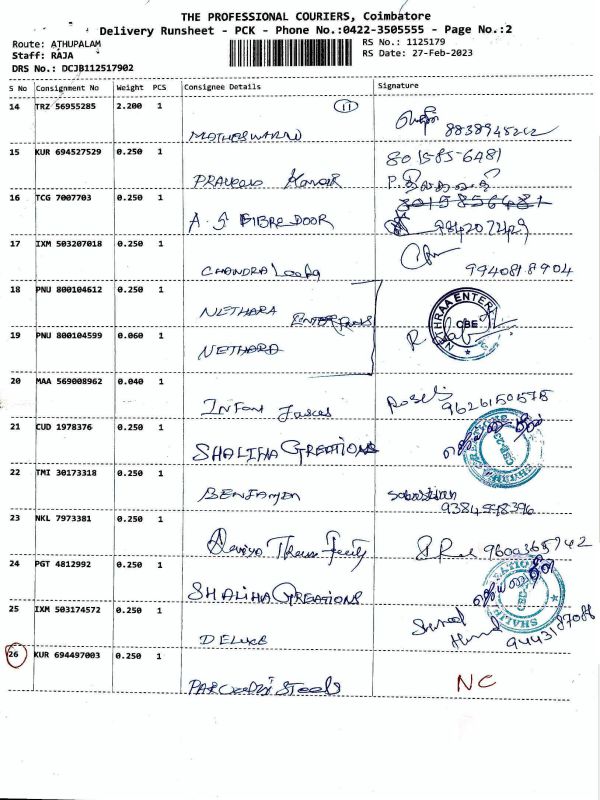 THE PROFESSIONAL COURIERS, Coimbatore
Delivery Runsheet - PCK - Phone No.:0422-3505555 - Page No.:2
Route: ATHUPALAM
Staff: RAJA
DRS No.: DCJB112517902
RS No.: 1125179
RS Date: 27-Feb-2023
S No Consignment No Weight PCS Consignee Details Signature
14 TRZ 56955285 2.200 1 11
8838945222
15 KUR 694527529 0.250 1 801585-6481
16 TCG 7007703 0.250 1 8015856481
A.S FIBRE DOOR
17 IXM 503207018 0.250 1
CHANDRA 9940818904
18 PNU 800104612 0.250 1
NETHARA NETHRAA ENTER CBE
19 PNU 800104599 0.060 1
NETHARA
20 MAA 569008962 0.040 1
9626150578
21 CUD 1978376 0.250 1
SHALIHA CREATIONS
22 TMI 30173318 0.250 1
BENJAMEN Sabastian
9384598396
23 NKL 7973381 0.250 1
9600365942
24 PGT 4812992 0.250 1
SHALIHA CREATIONS
25 IXM 503174572 0.250 1
DELUXE 9443187086
26 KUR 694497003 0.250 1
Steels NC